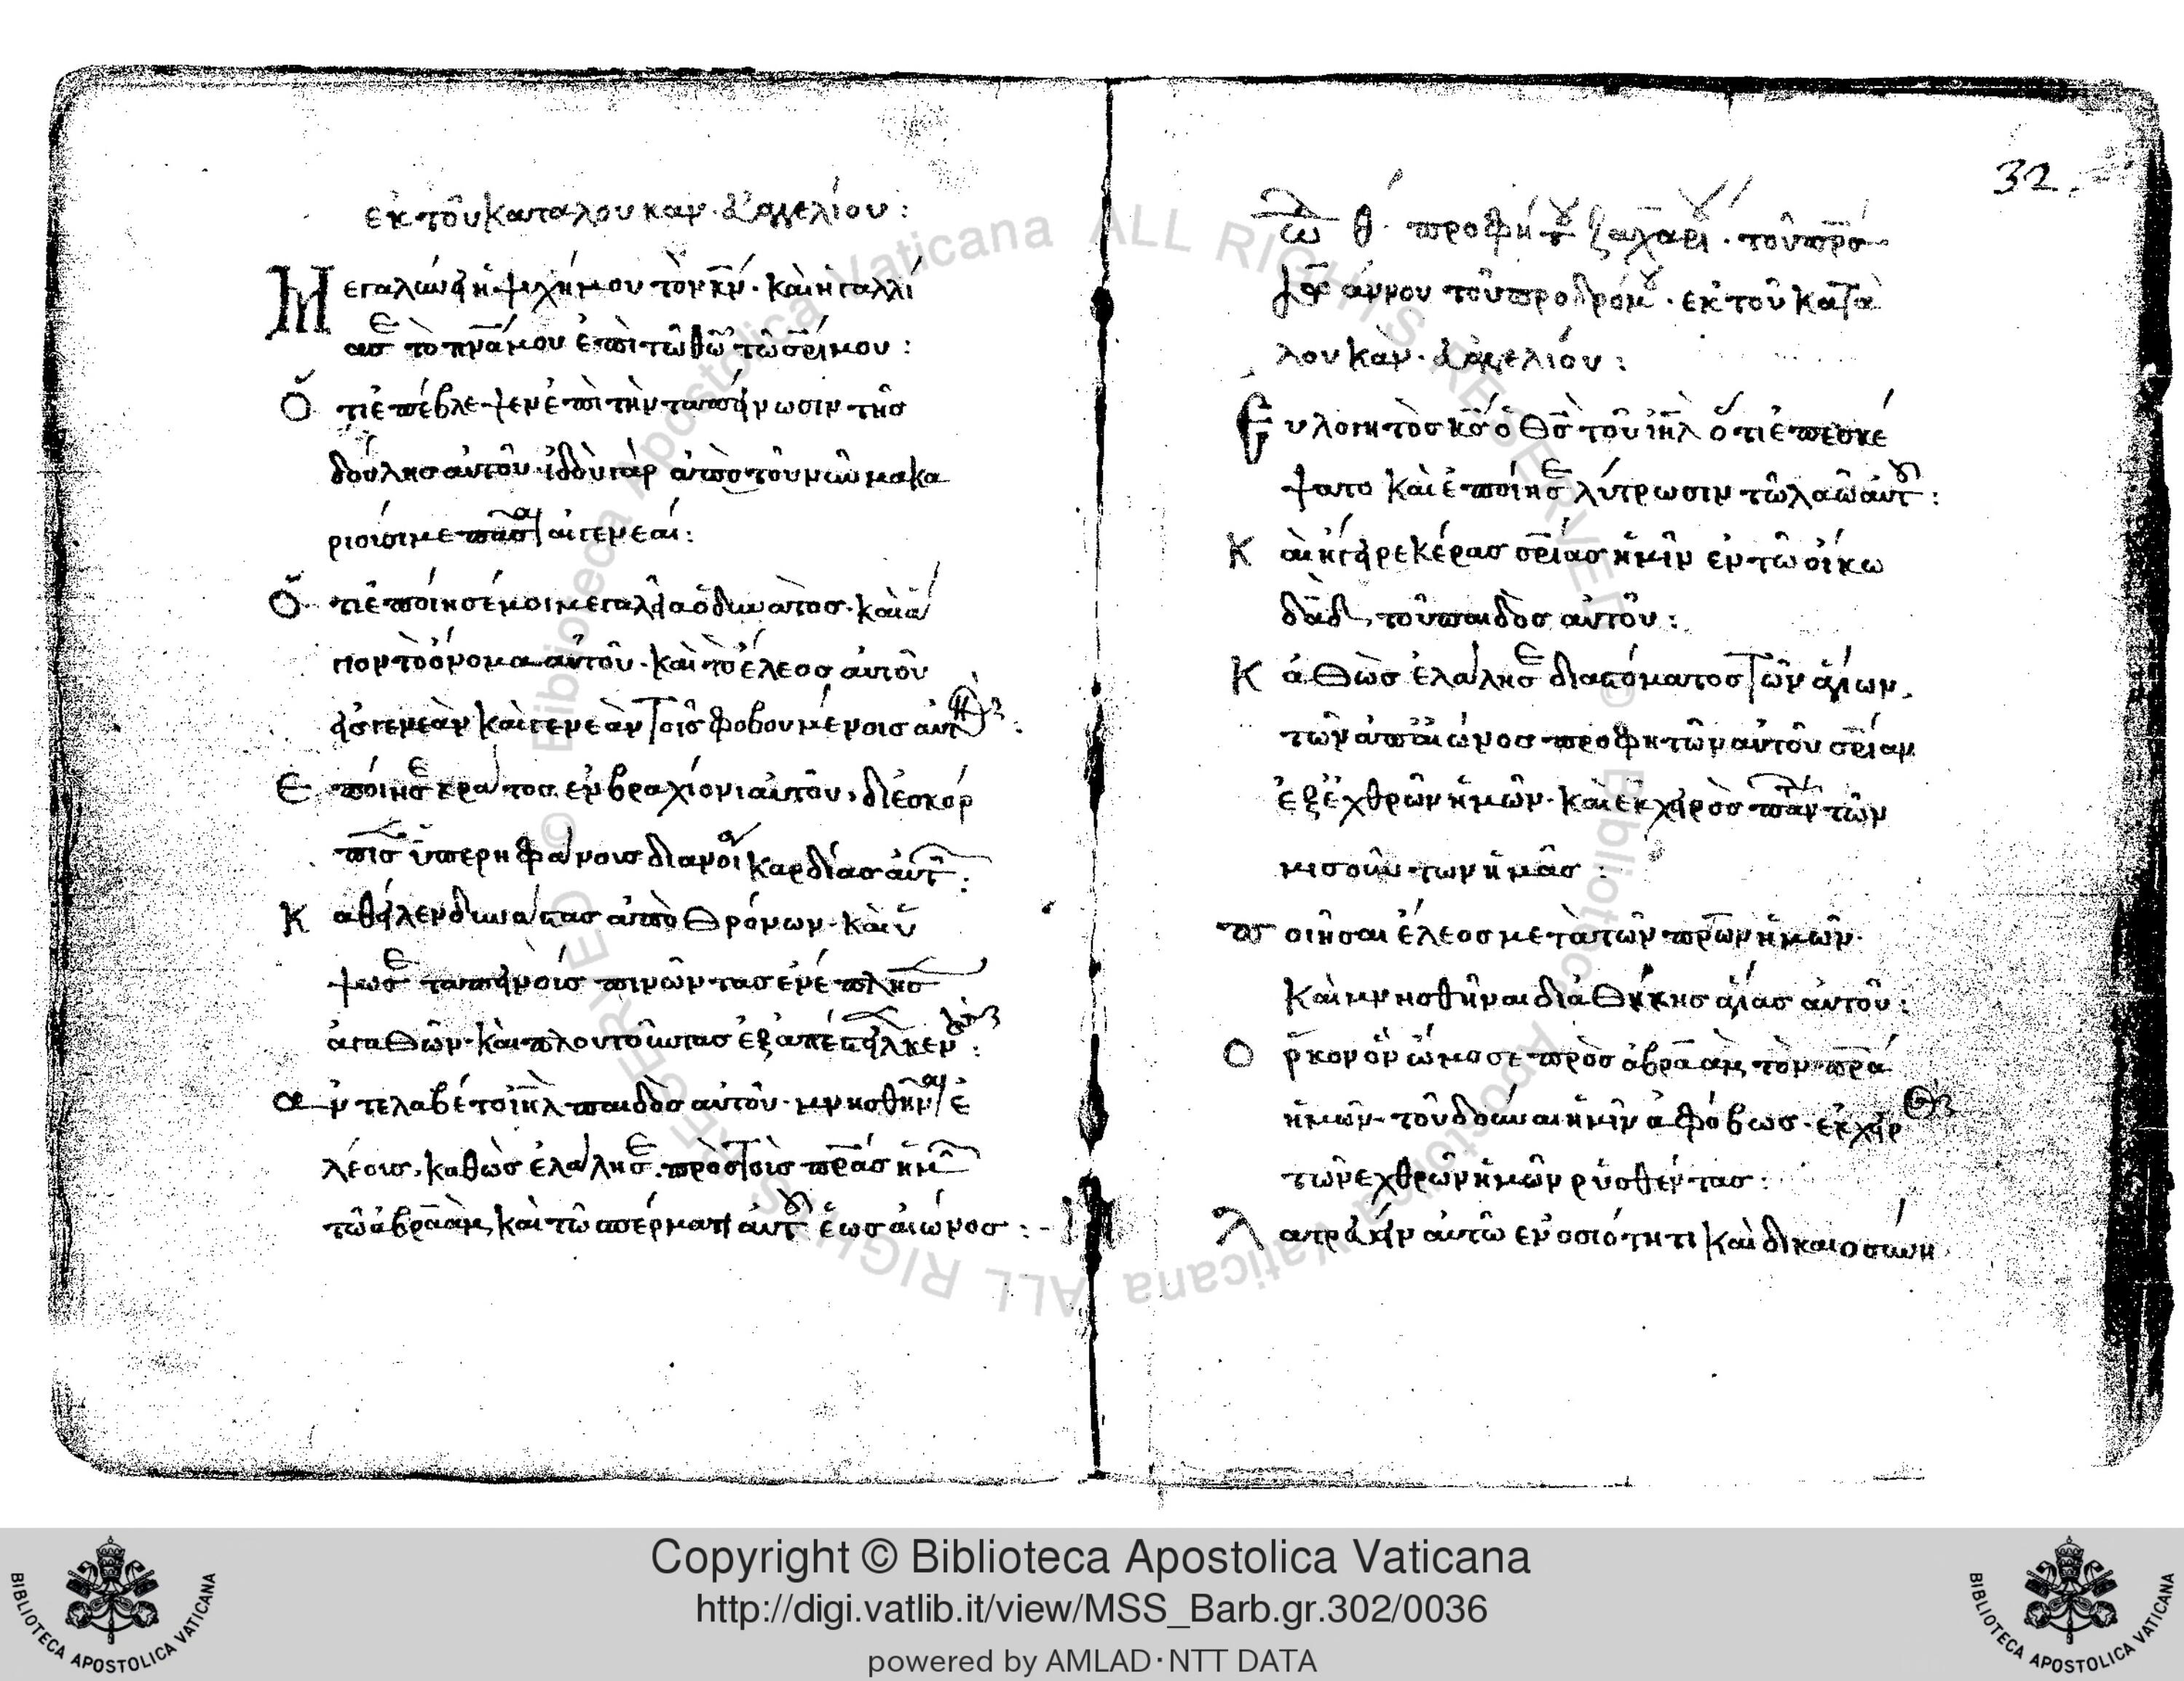 ἐκ τοῦ κατὰ λουκᾶν εὐαγγελίου :
Μεγαλύνει ἡ ψυχή μου τὸν κ̅ν̅· καὶ ἠγαλλί
ασε τὸ π̅ν̅ά μου ἐπὶ τῶ θ̅ω̅ τῶ σ̅ρ̅ι μου :
Ὅτι ἐπέβλεψεν ἐπὶ τὴν ταπείνωσιν τῆσ
δούλησ αὐτοῦ· ἰδοὺ γὰρ ἀπὸ τοῦ νῦν μακα
ριοῦσι με πᾶσαι αἱ γενεαί :
Ὅτι ἐποίησέ μοι μεγαλεῖα ὁ δυνατὸσ· καὶ ἅ
γιον τὸ ὄνομα αὐτοῦ· καὶ τὸ ἔλεοσ αὐτοῦ
εἰσ γενεὰν καὶ γενεὰν τοῖσ φοβουμένοισ αὐτὸν :
Ἐποίησε κράτοσ ἐν βραχίονι αὐτοῦ, διεσκόρ
πισεν ὑπερηφάνουσ διανοίᾳ καρδίασ αὐτῶν :
Καθεῖλεν δυνάστασ ἀπὸ θρόνων· καὶ ὕ
ψωσε ταπεινοὺσ πεινῶντασ ἐνέπλησεν
ἀγαθῶν· καὶ πλουτοῦντασ ἐξαπέστειλεν κενούσ :
Ἀντελάβετο ι̅η̅λ̅ παιδὸσ αὐτοῦ· μνησθῆναι ἐ
λέουσ, καθὼσ ἐλάλησε πρὸσ τοὺσ π̅ρ̅ασ ἡμῶν
τῶ ἀβραὰμ, καὶ τῶ σπέρματι αὐτοῦ ἕωσ αἰῶνοσ :-
32.
ὠδὴ θ· προφήτου ζαχαρίου· τοῦ π̅ρ̅σ
ἰωάννου τοῦ προδρόμου· ἐκ τοῦ κατὰ
λουκᾶν· εὐαγγελίου :
Εὐλογητὸσ κ̅σ̅ ὁ θ̅σ̅ τοῦ ι̅η̅λ̅ ὅτι ἐπεσκέ
ψατο καὶ ἐποίησε λύτρωσιν τῶ λαῶ αὐτοῦ :
Καὶ ἤγειρε κέρασ σ̅ρ̅ίασ ἡμῖν ἐν τῶ οἴκω
δ̅α̅δ̅, τοῦ παιδὸσ αὐτοῦ :
Καθὼσ ἐλάλησε διὰ στόματοσ τῶν ἁγίων,
τῶν ἀπ' αἰῶνοσ προφητῶν αὐτοῦ σ̅ρ̅ίαν
ἐξ ἐχθρῶν ἡμῶν· καὶ ἐκ χειρὸσ πάντων τῶν
μισούντων ἡμᾶσ :
Ποιῆσαι ἔλεοσ μετὰ τῶν π̅ρ̅ων ἡμῶν·
καὶ μνησθῆναι διαθήκησ ἁγίασ αὐτοῦ :
Ὅρκον ὃν ὤμοσε πρὸσ ἀβραὰμ, τὸν π̅ρ̅α
ἡμῶν· τοῦ δοῦναι ἡμῖν ἀφόβωσ· ἐκ χειρὸσ
τῶν ἐχθρῶν ἡμῶν ῥυσθέντασ :
Λατρεύειν αὐτῶ ἐν ὁσιότητι καὶ δικαιοσύνη
Copyright © Biblioteca Apostolica Vaticana
http://digi.vatlib.it/view/MSS_Barb.gr.302/0036
powered by AMLAD·NTT DATA
BIBLIOTECA APOSTOLICA VATICANA
BIBLIOTECA APOSTOLICA VATICANA